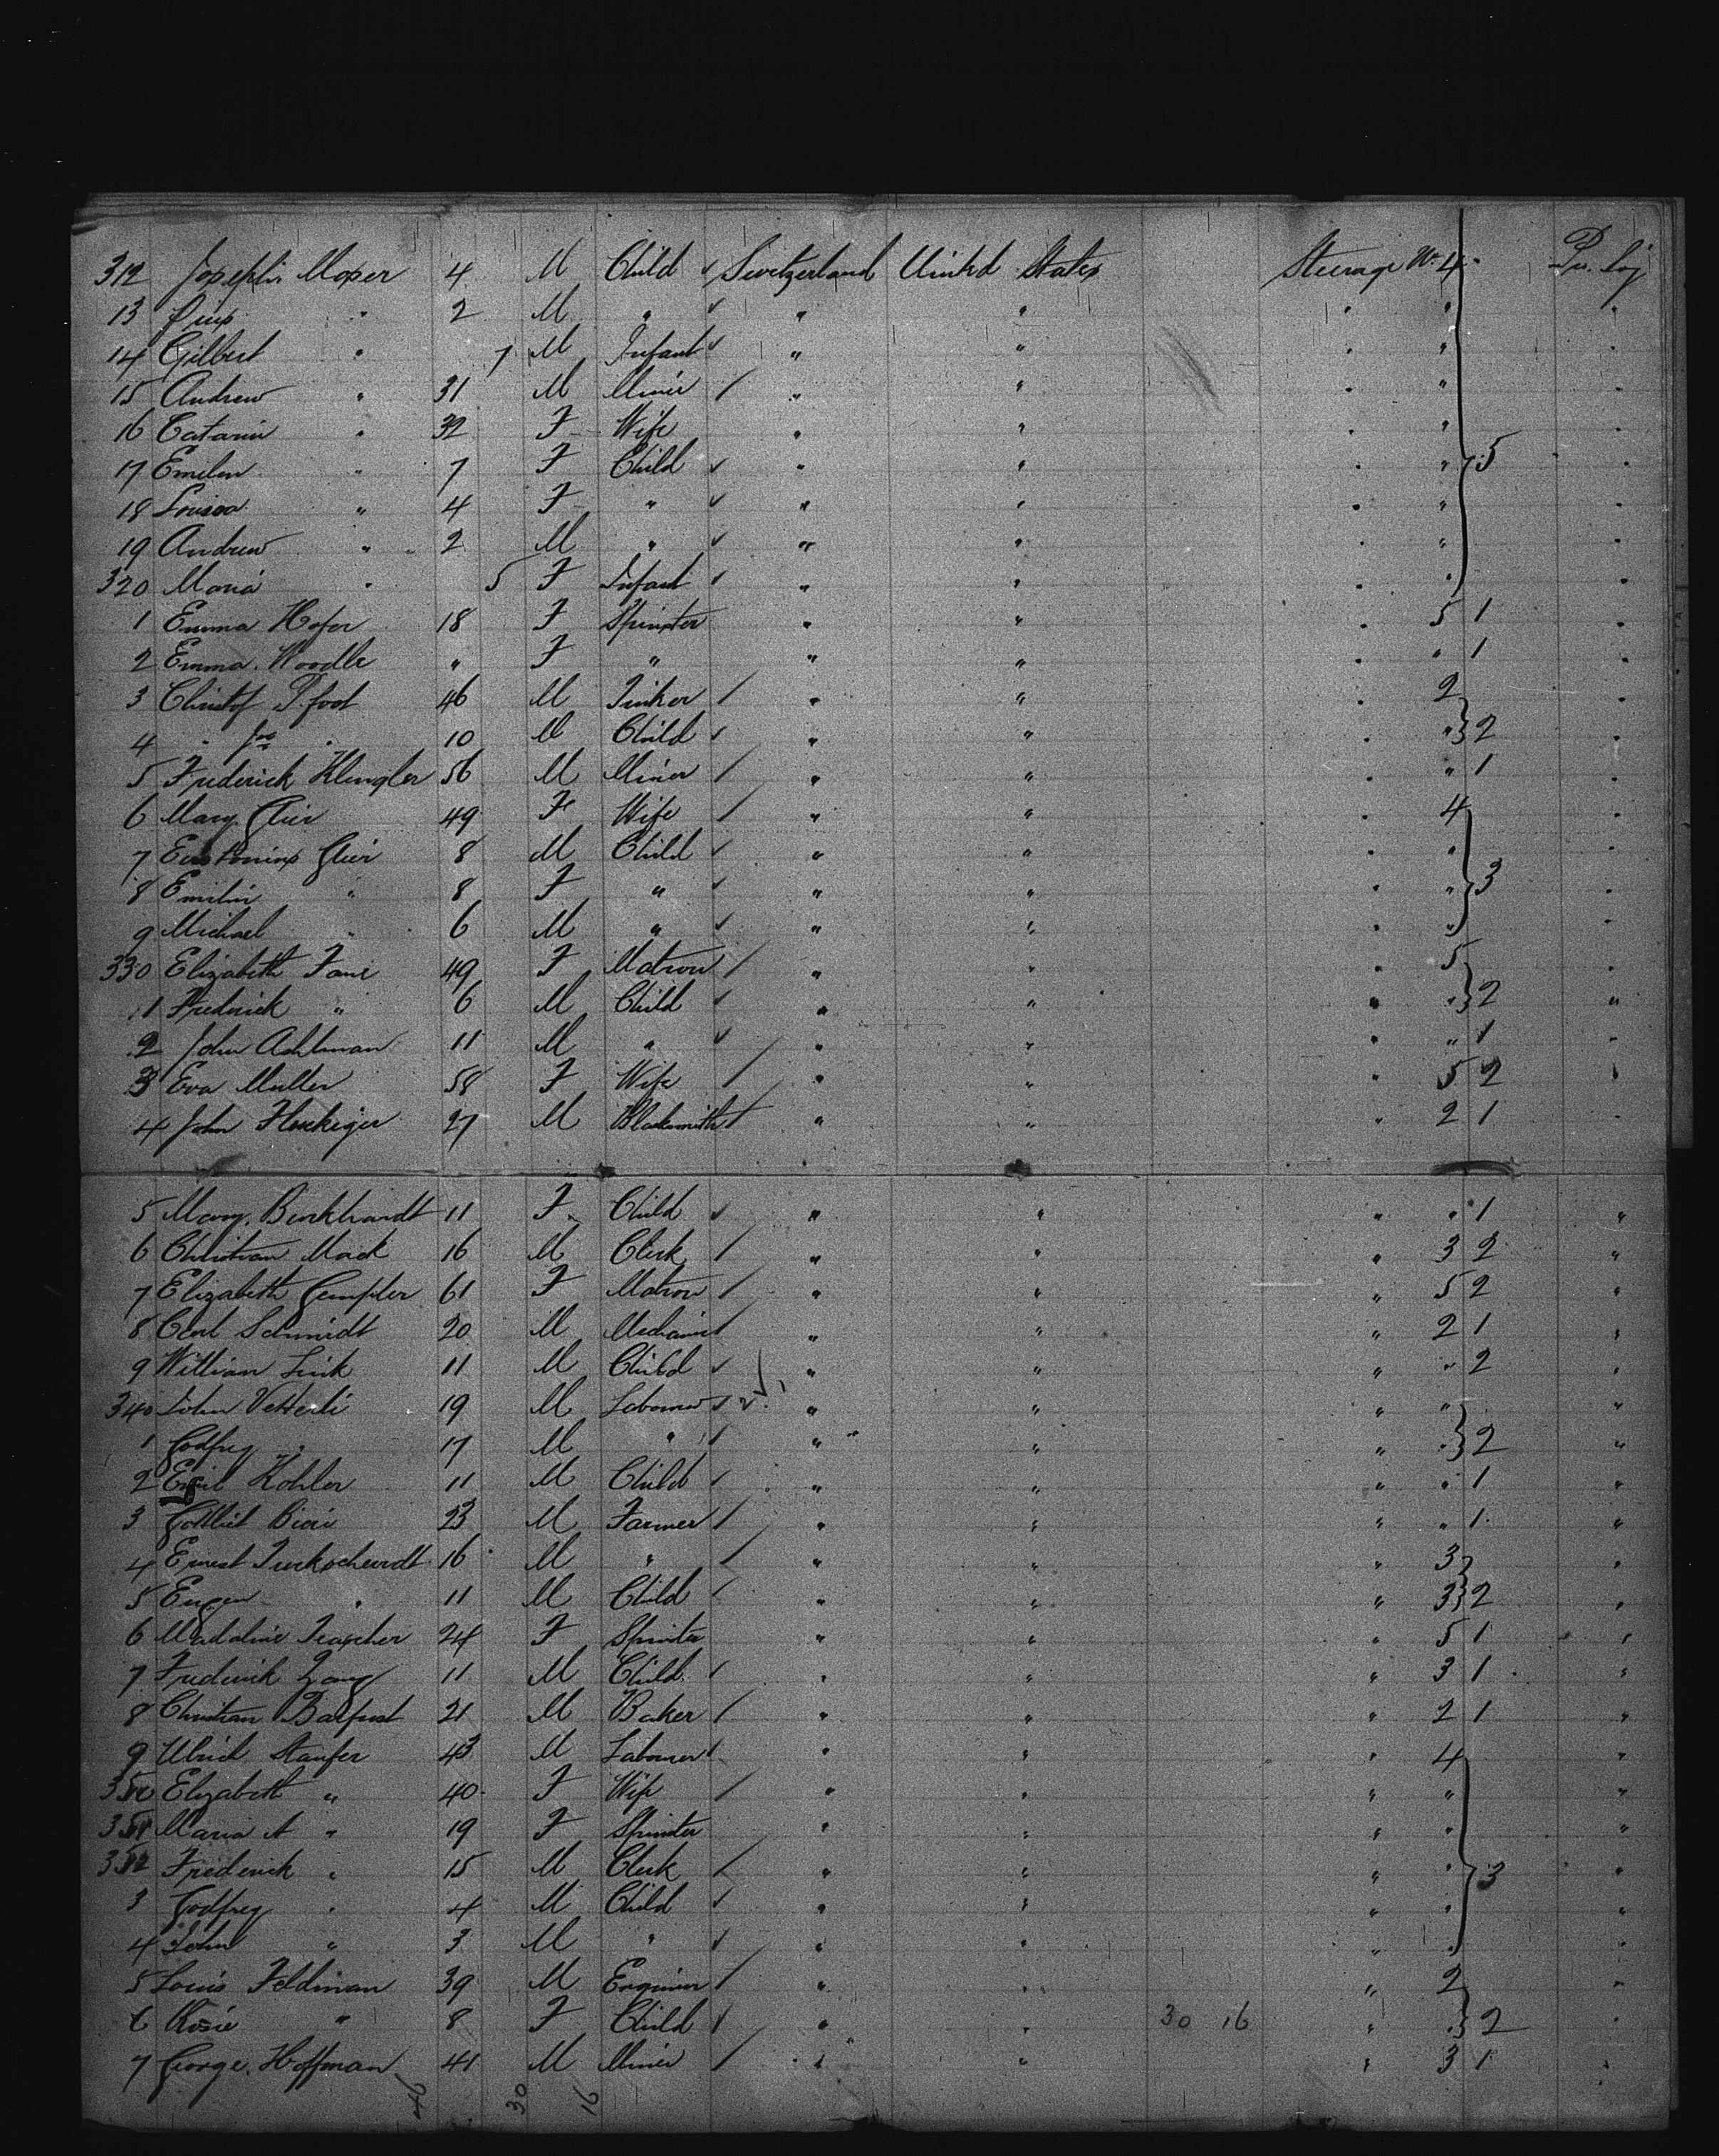 312 Joseph Moser 4 M Child Switzerland United States Steerage No 4
13 Pius " 2 M " " " " "
14 Gilbert " 7 M Infant " " " "
15 Andrew " 31 M Miner " " " "
16 " 32 F Wife " " " "
17 " 7 F Child " " " " 5
18 Louisa " 4 F " " " " "
19 Andrew " 2 M " " " " "
320 Maria " 5 F Infant " " " "
1 Emma Hofer 18 F Spinster " " " 5 1
2 Emma Woodle " F " " " " " 1
3 Christof Pfost 46 M Tinker " " " 2
4 " " 10 M Child " " " " 2
5 Frederick Klingler 56 M Miner " " " " 1
6 Mary 49 F Wife " " " 4
7 8 M Child " " " "
8 Emilie " 8 F " " " " " 3
9 Michael " 6 M " " " " "
330 Elizabeth 49 F Matron " " " 5
1 Frederick " 6 M Child " " " " 2 "
2 John Ashlman 11 M " " " " " 1 "
3 Eva Muller 58 F Wife " " " 5 2
4 John Fluckiger 27 M Blacksmith " " " 2 1
5 Mary Burkhardt 11 F Child " " " " 1 "
6 Christian Mack 16 M Clerk " " " 3 2 "
7 Elizabeth Gempler 61 F Matron " " " 5 2 "
8 Carl Schmidt 20 M Mechanic " " " 2 1 "
9 William Link 11 M Child " " " " 2 "
340 John Vetterli 19 M Labourer " " " " "
1 Godfrey " 17 M " " " " " 2 "
2 Emil Kohler 11 M Child " " " " 1 "
3 Gottlieb Bieri 23 M Farmer " " " " 1 "
4 Ernest 16 M " " " " 3 "
5 Eugen " 11 M Child " " " 3 2 "
6 Madaline Teascher 24 F Spinster " " " 5 1 "
7 Frederick Zaug 11 M Child " " " 3 1 "
8 Christian Barfust 21 M Baker " " " 2 1 "
9 Ulrich Staufer 43 M Labourer " " " 4 "
350 Elizabeth " 40 F Wife " " " " "
351 Maria A " 19 F Spinster " " " " "
352 Frederick " 15 M Clerk " " " " 3 "
3 Godfrey " 4 M Child " " " " "
4 John " 3 M " " " " " "
5 Louis Feldman 39 M Engineer " " " 2 "
6 Rosie " 8 F Child " " 30 16 " " 2 "
7 George Hoffman 41 M Miner " " " 3 1 "
46 30 16